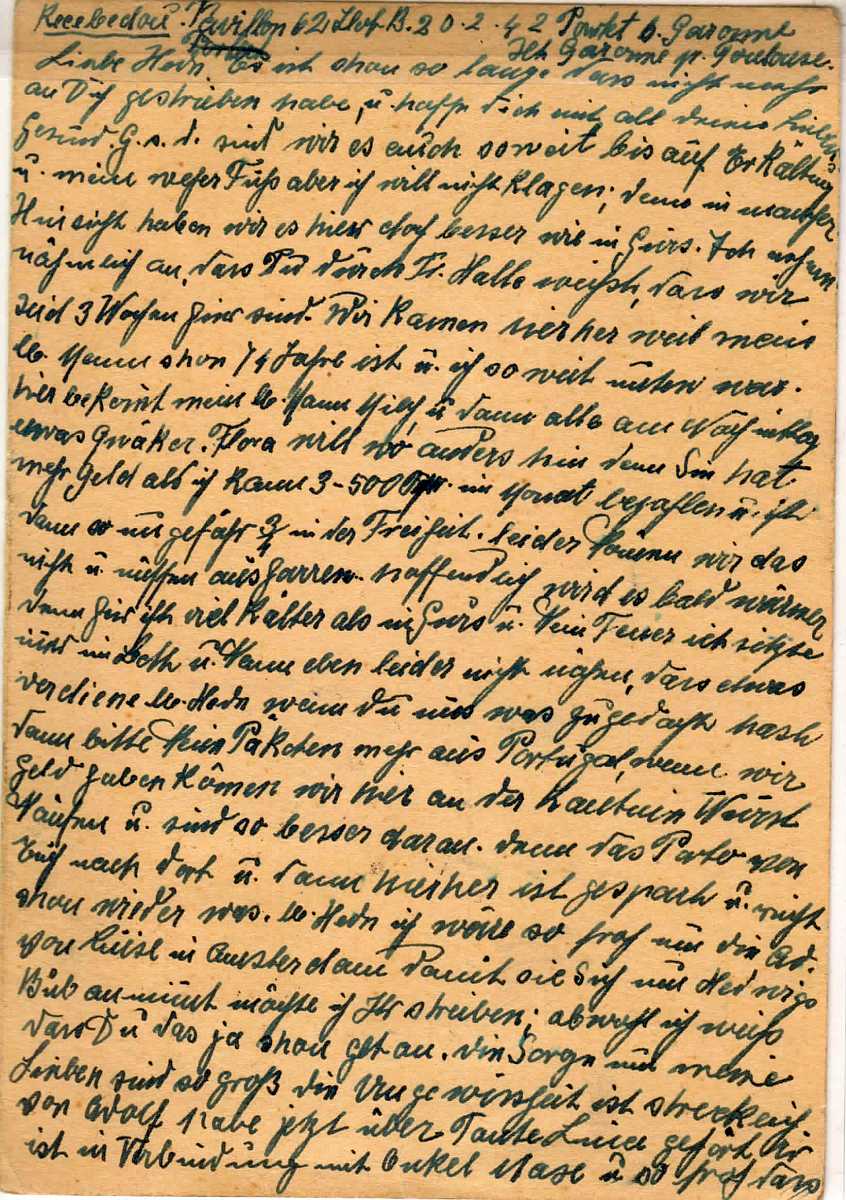 Recebedou. Pavillon 62 Ilot. B. 20.2.42 Portet b. Garonne
Hte Garonne p. Toulouse.
Liebe Hedn. Es ist shon so lange dass nicht mehr
an Dich gestrieben habe, u. hoffe dich mit all deine Lieben
Gesund. G. s. d. sind wir es auch soweit bis auf Erkältung
u. mein weher Fuß aber ich will nicht Klagen; denn in mancher
Hinsicht haben wir es hier doch besser wie in Gurs. Ich nehme
nähmlich an, dass Du durch Fr. Halle weißt, dass wir
seid 3 Wochen hier sind. Wir Kamen hierher weil mein
lb. Mann shon 74 Jahre ist u. ich so weit unten war.
hier bekomt mein lb. Mann Milch u. dann alle am Nachmittag
etwas Qwäker. Flora will wo anders hin denn Sie hat
mehr Geld als ich Kann 3-500 im Monat bezahlen u. ist
dann so ungefähr 3/4 in der Freiheit. leider Können wir das
nicht u. müssen ausharren. hoffendlich wird es bald wärmer
denn hier ist viel Kälter als in Gurs u. Kein Feuer ich sitzte
nur im Beth u. Kann eben leider nicht nähen, dass etwas
verdiene lb. Hedn wenn Du uns was zugedacht hast
dann bitte Kein Päkchen mehr aus Portugal, wenn wir
Geld haben Können wir hier an der Kantuin Wurst
Kaufen u. sind so besser daran. denn das Porto von
Euch nach dort u. dann hierher ist gespart u. reicht
shon wieder was. lb. Hedn ich wäre so froh um die Ad.
von Luise in Amsterdam damit sie Sich um Hedwigs
Bub an nimt möchte ich Ihr streiben; obwohl ich weiß
dass Du das ja shon getan. die Sorge um meine
Lieben sind so groß die Ungewissheit ist strecklich
von Adolf habe jetzt über Tante Lina gehört Er
ist in Verbindung mit Onkel Mase u. so froh dass